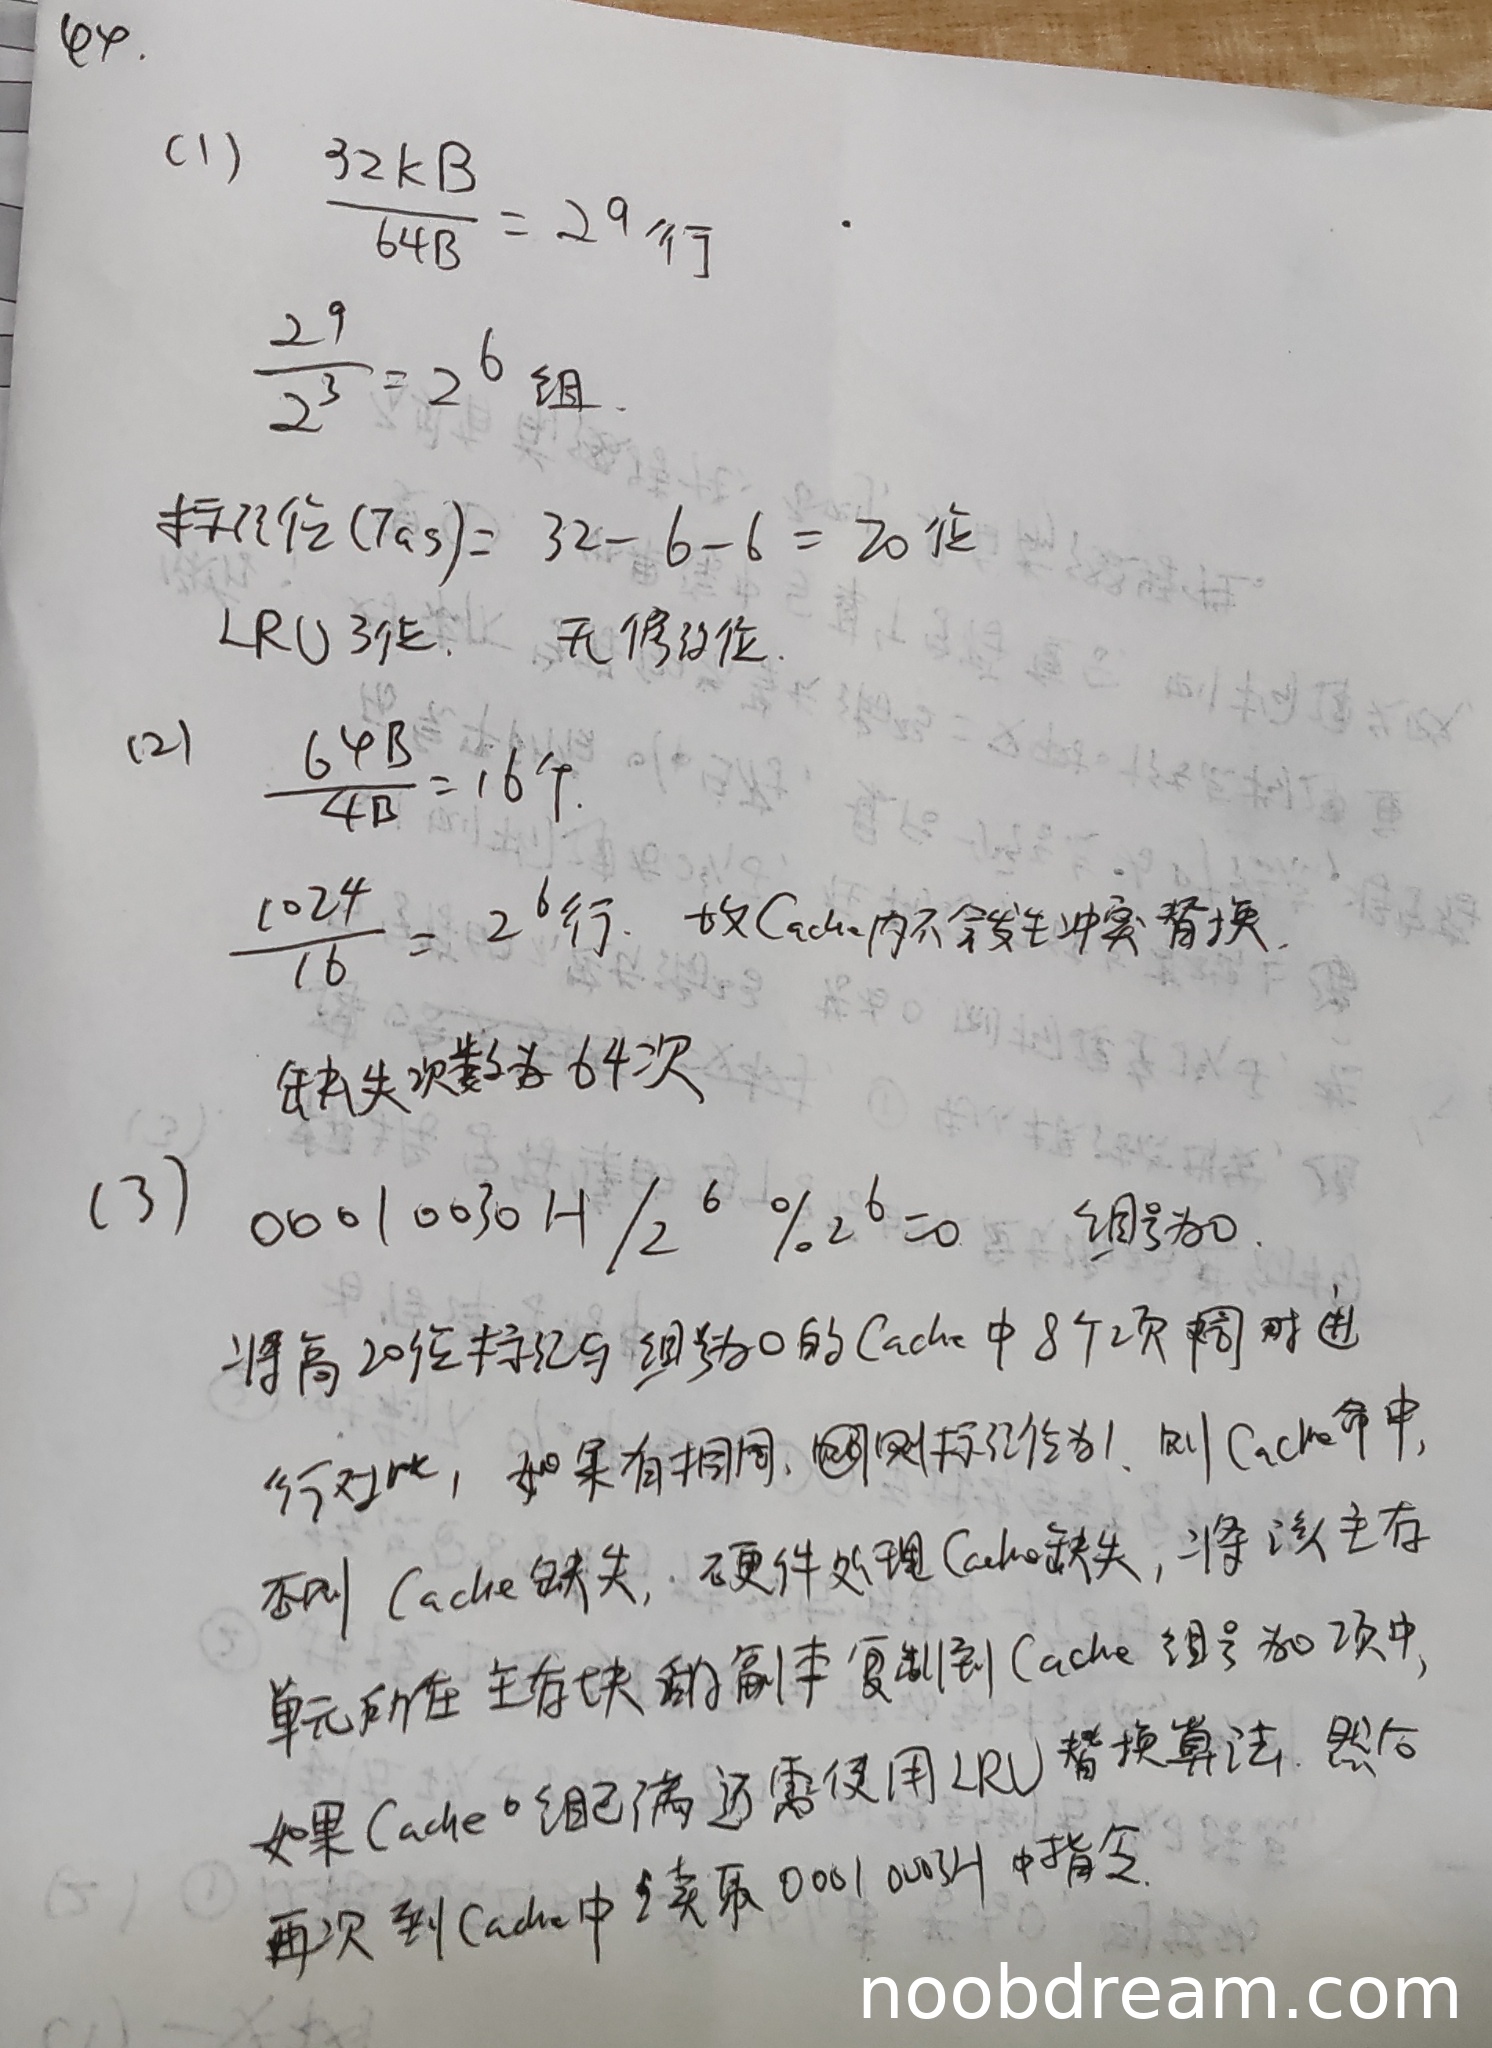 44.
(1) 32KB / 64B = 2^9 行
2^9 / 2^3 = 2^6 组.
标记位(Tag) = 32-6-6 = 20位
LRU 3位. 无修改位.
(2) 64B / 4B = 16个.
1024 / 16 = 2^6行. 故Cache内不会发生冲突替换.
缺失次数为64次
(3) 00010030H / 2^6 % 2^6 = 0 组号为0.
将高20位标记与组号为0的Cache中8个项同时进
行对比, 如果有相同, 则标记位为1, 则Cache命中,
否则Cache缺失, 硬件处理Cache缺失, 将该主存
单元所在主存块的副本复制到Cache组号为0项中,
如果Cache 0组已满还需使用LRU替换算法. 然后
再次到Cache中读取0001003H中指令.
noobdream.com